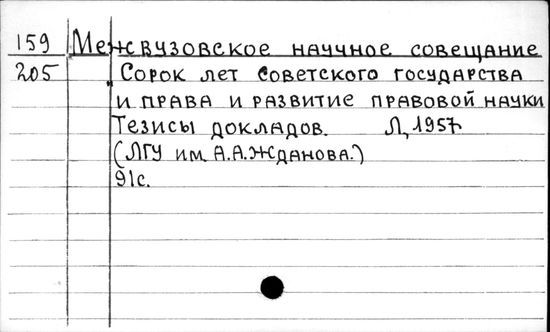 159 Межвузовское научное совещание
205 Сорок лет советского государства
и права и развитие правовой науки
Тезисы докладов. Л, 1957
(ЛГУ им. А.А.Жданова.)
91с.